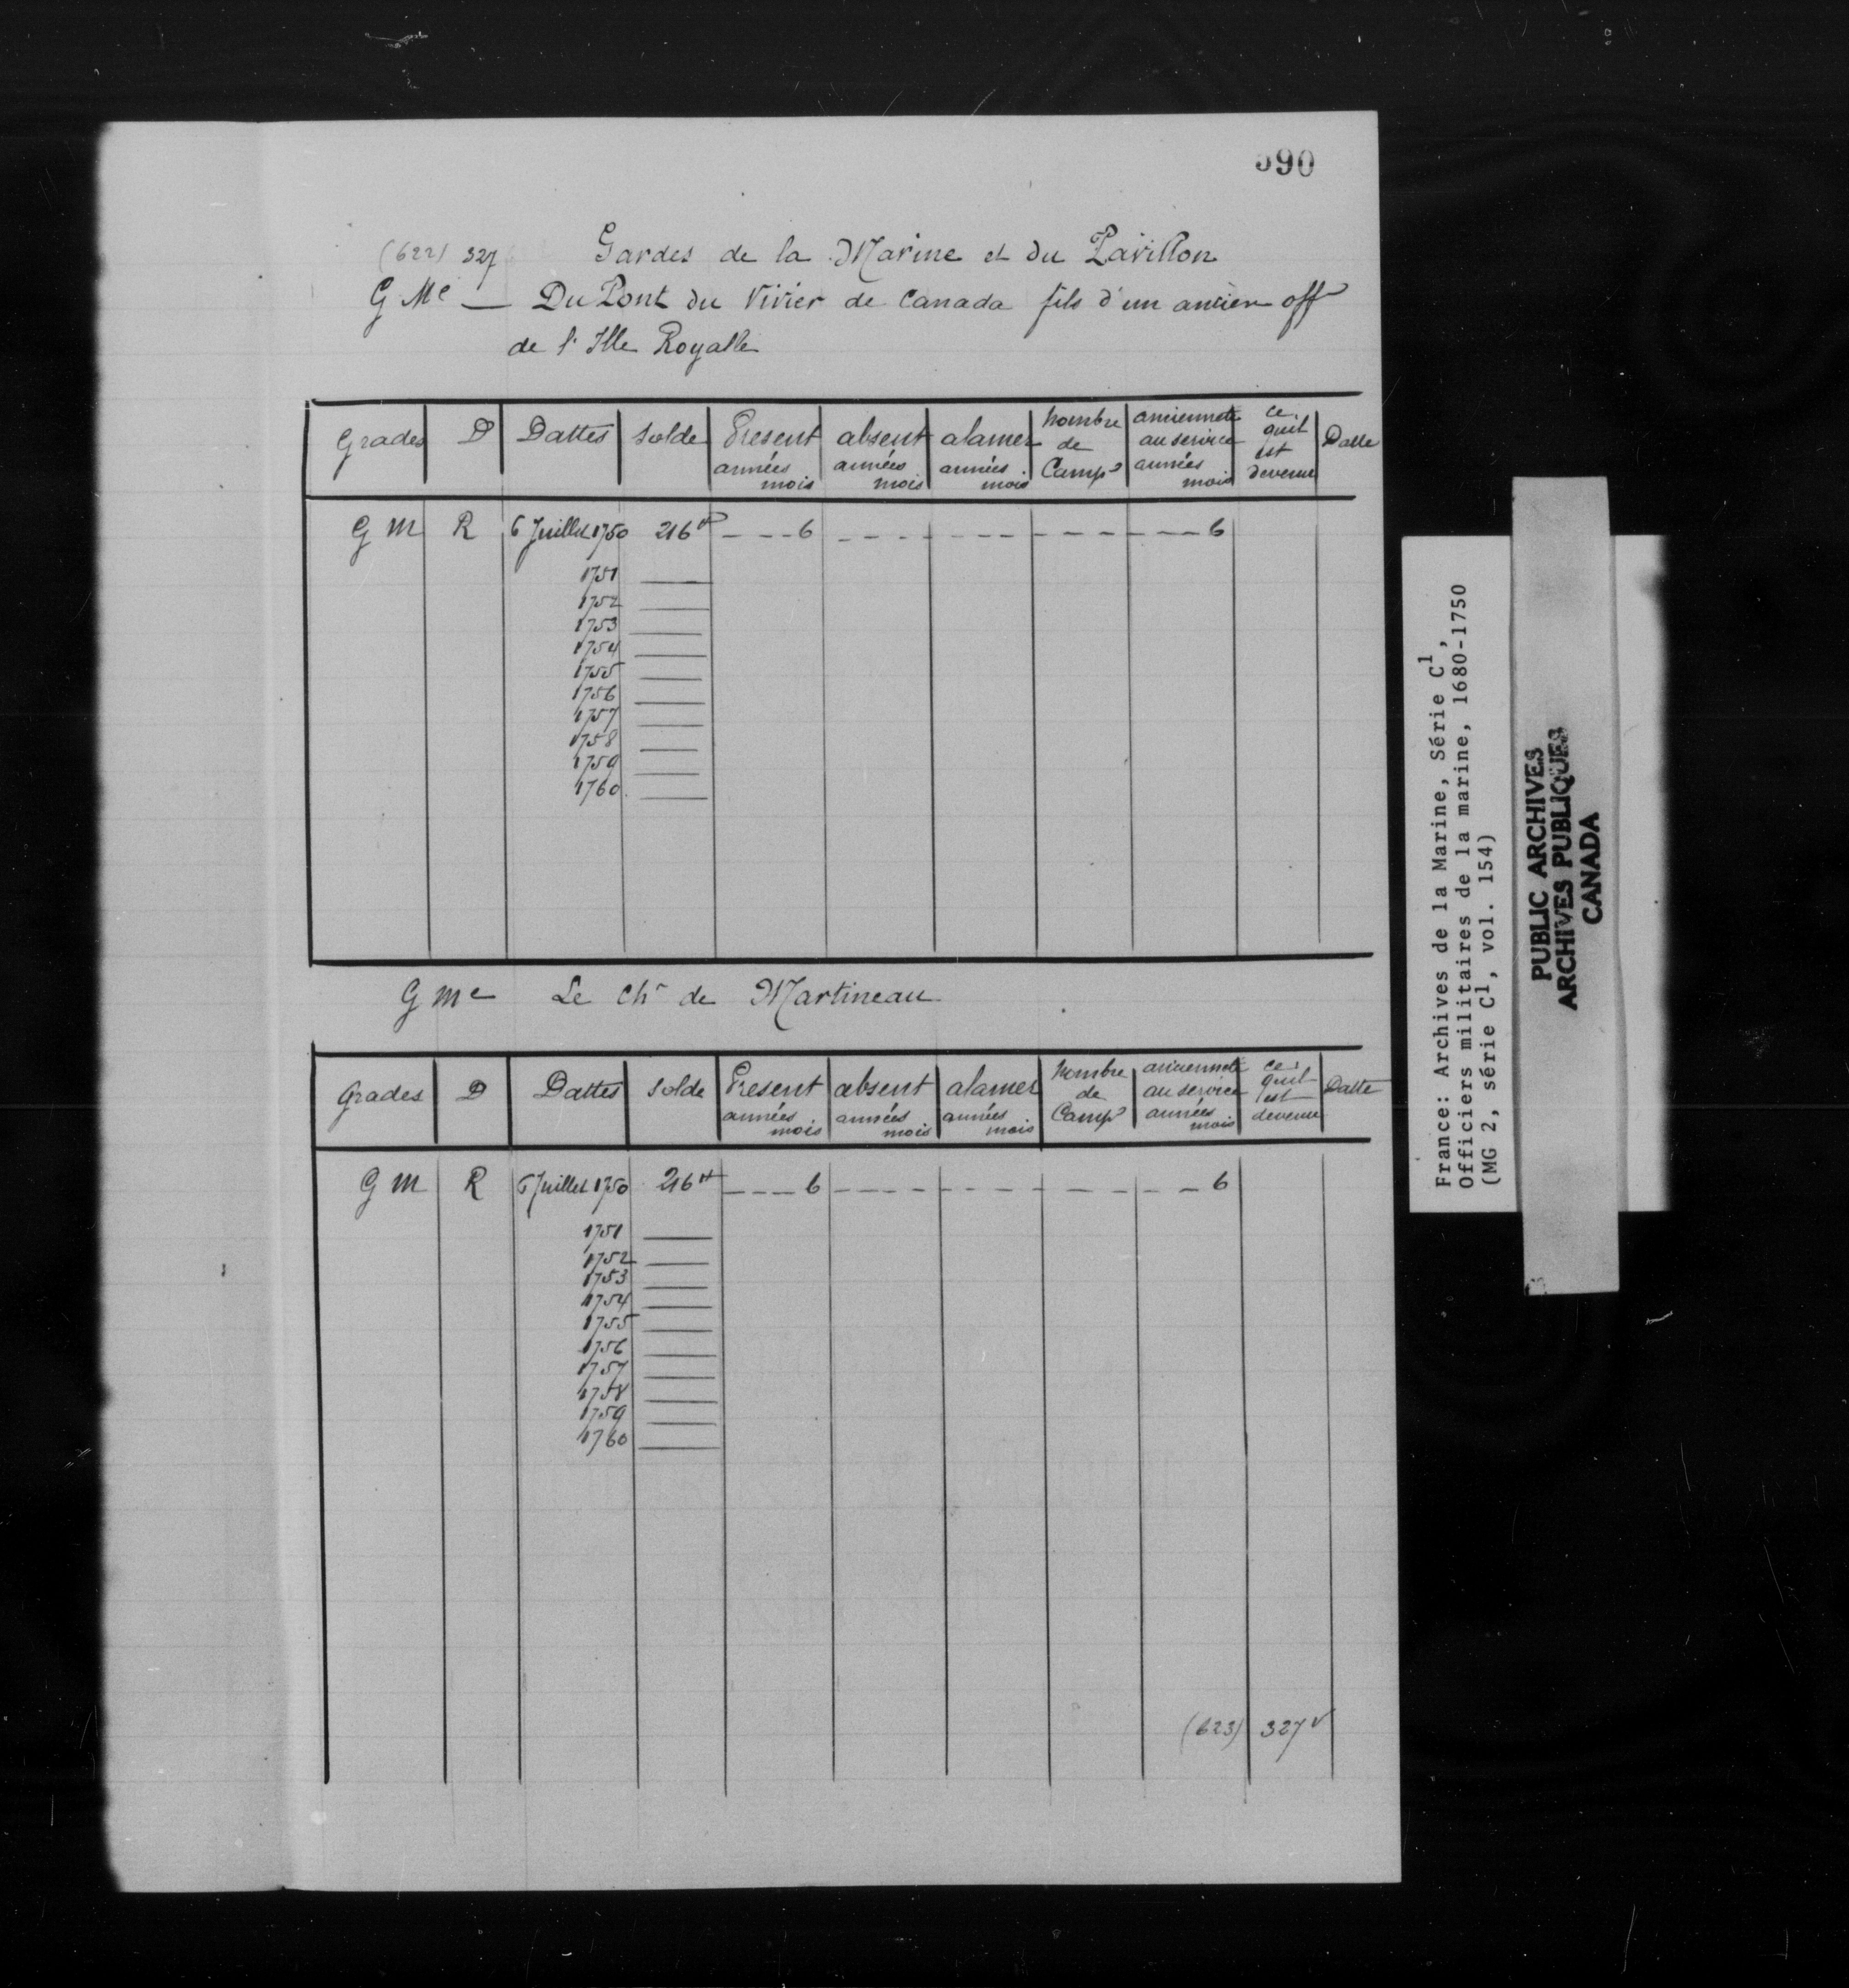 590
(622) 327 Gardes de la Marine et du Pavillon
G Me — Du Pont du Vivier de Canada fils d'un ancien offr
de l'Ille Royalle
Grades D Dattes Solde Present années mois absent années mois alamer années mois Nombre de Camp ancienneté au service années mois ce quil est devenu Datte
G M R 6 Juillet 1750 216# - - - 6 - - - - - - - - - - - - - - - 6
1751 ——
1752 ——
1753 ——
1754 ——
1755 ——
1756 ——
1757 ——
1758 ——
1759 ——
1760 ——
G Me Le Chr de Martineau
Grades D Dattes Solde Present années mois absent années mois alamer années mois Nombre de Camp ancienneté au service années mois ce quil est devenu Datte
G M R 6 Juillet 1750 216# - - - 6 - - - - - - - - - - - - - 6
1751 ——
1752 ——
1753 ——
1754 ——
1755 ——
1756 ——
1757 ——
1758 ——
1759 ——
1760 ——
(623) 327 v
France: Archives de la Marine, Série C1,
Officiers militaires de la marine, 1680-1750
(MG 2, série C1, vol. 154)
PUBLIC ARCHIVES
ARCHIVES PUBLIQUES
CANADA